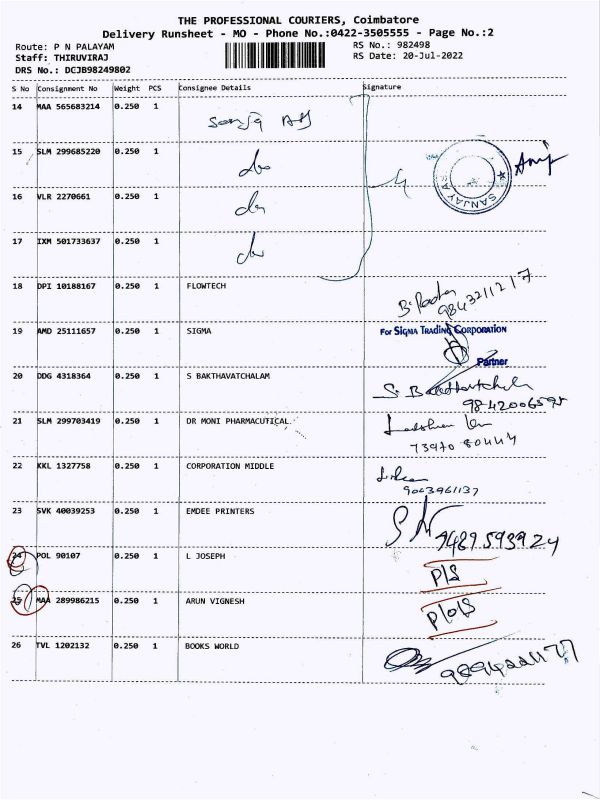 THE PROFESSIONAL COURIERS, Coimbatore
Delivery Runsheet - MO - Phone No.:0422-3505555 - Page No.:2
Route: P N PALAYAM RS No.: 982498
Staff: THIRUVIRAJ RS Date: 20-Jul-2022
DRS No.: DCJB98249802
S No Consignment No Weight PCS Consignee Details Signature
14 MAA 565683214 0.250 1
15 SLM 299685220 0.250 1 do
SANJAY
16 VLR 2270661 0.250 1 do
17 IXM 501733637 0.250 1 do
18 DPI 10188167 0.250 1 FLOWTECH
9843211217
19 AMD 25111657 0.250 1 SIGMA For SIGMA TRADING CORPORATION
Partner
20 DDG 4318364 0.250 1 S BAKTHAVATCHALAM
9842006595
21 SLM 299703419 0.250 1 DR MONI PHARMACUTICAL
73970 80444
22 KKL 1327758 0.250 1 CORPORATION MIDDLE
9003961137
23 SVK 40039253 0.250 1 EMDEE PRINTERS
9489593924
24 POL 90107 0.250 1 L JOSEPH P/S
25 MAA 289986215 0.250 1 ARUN VIGNESH P/O/S
26 TVL 1202132 0.250 1 BOOKS WORLD